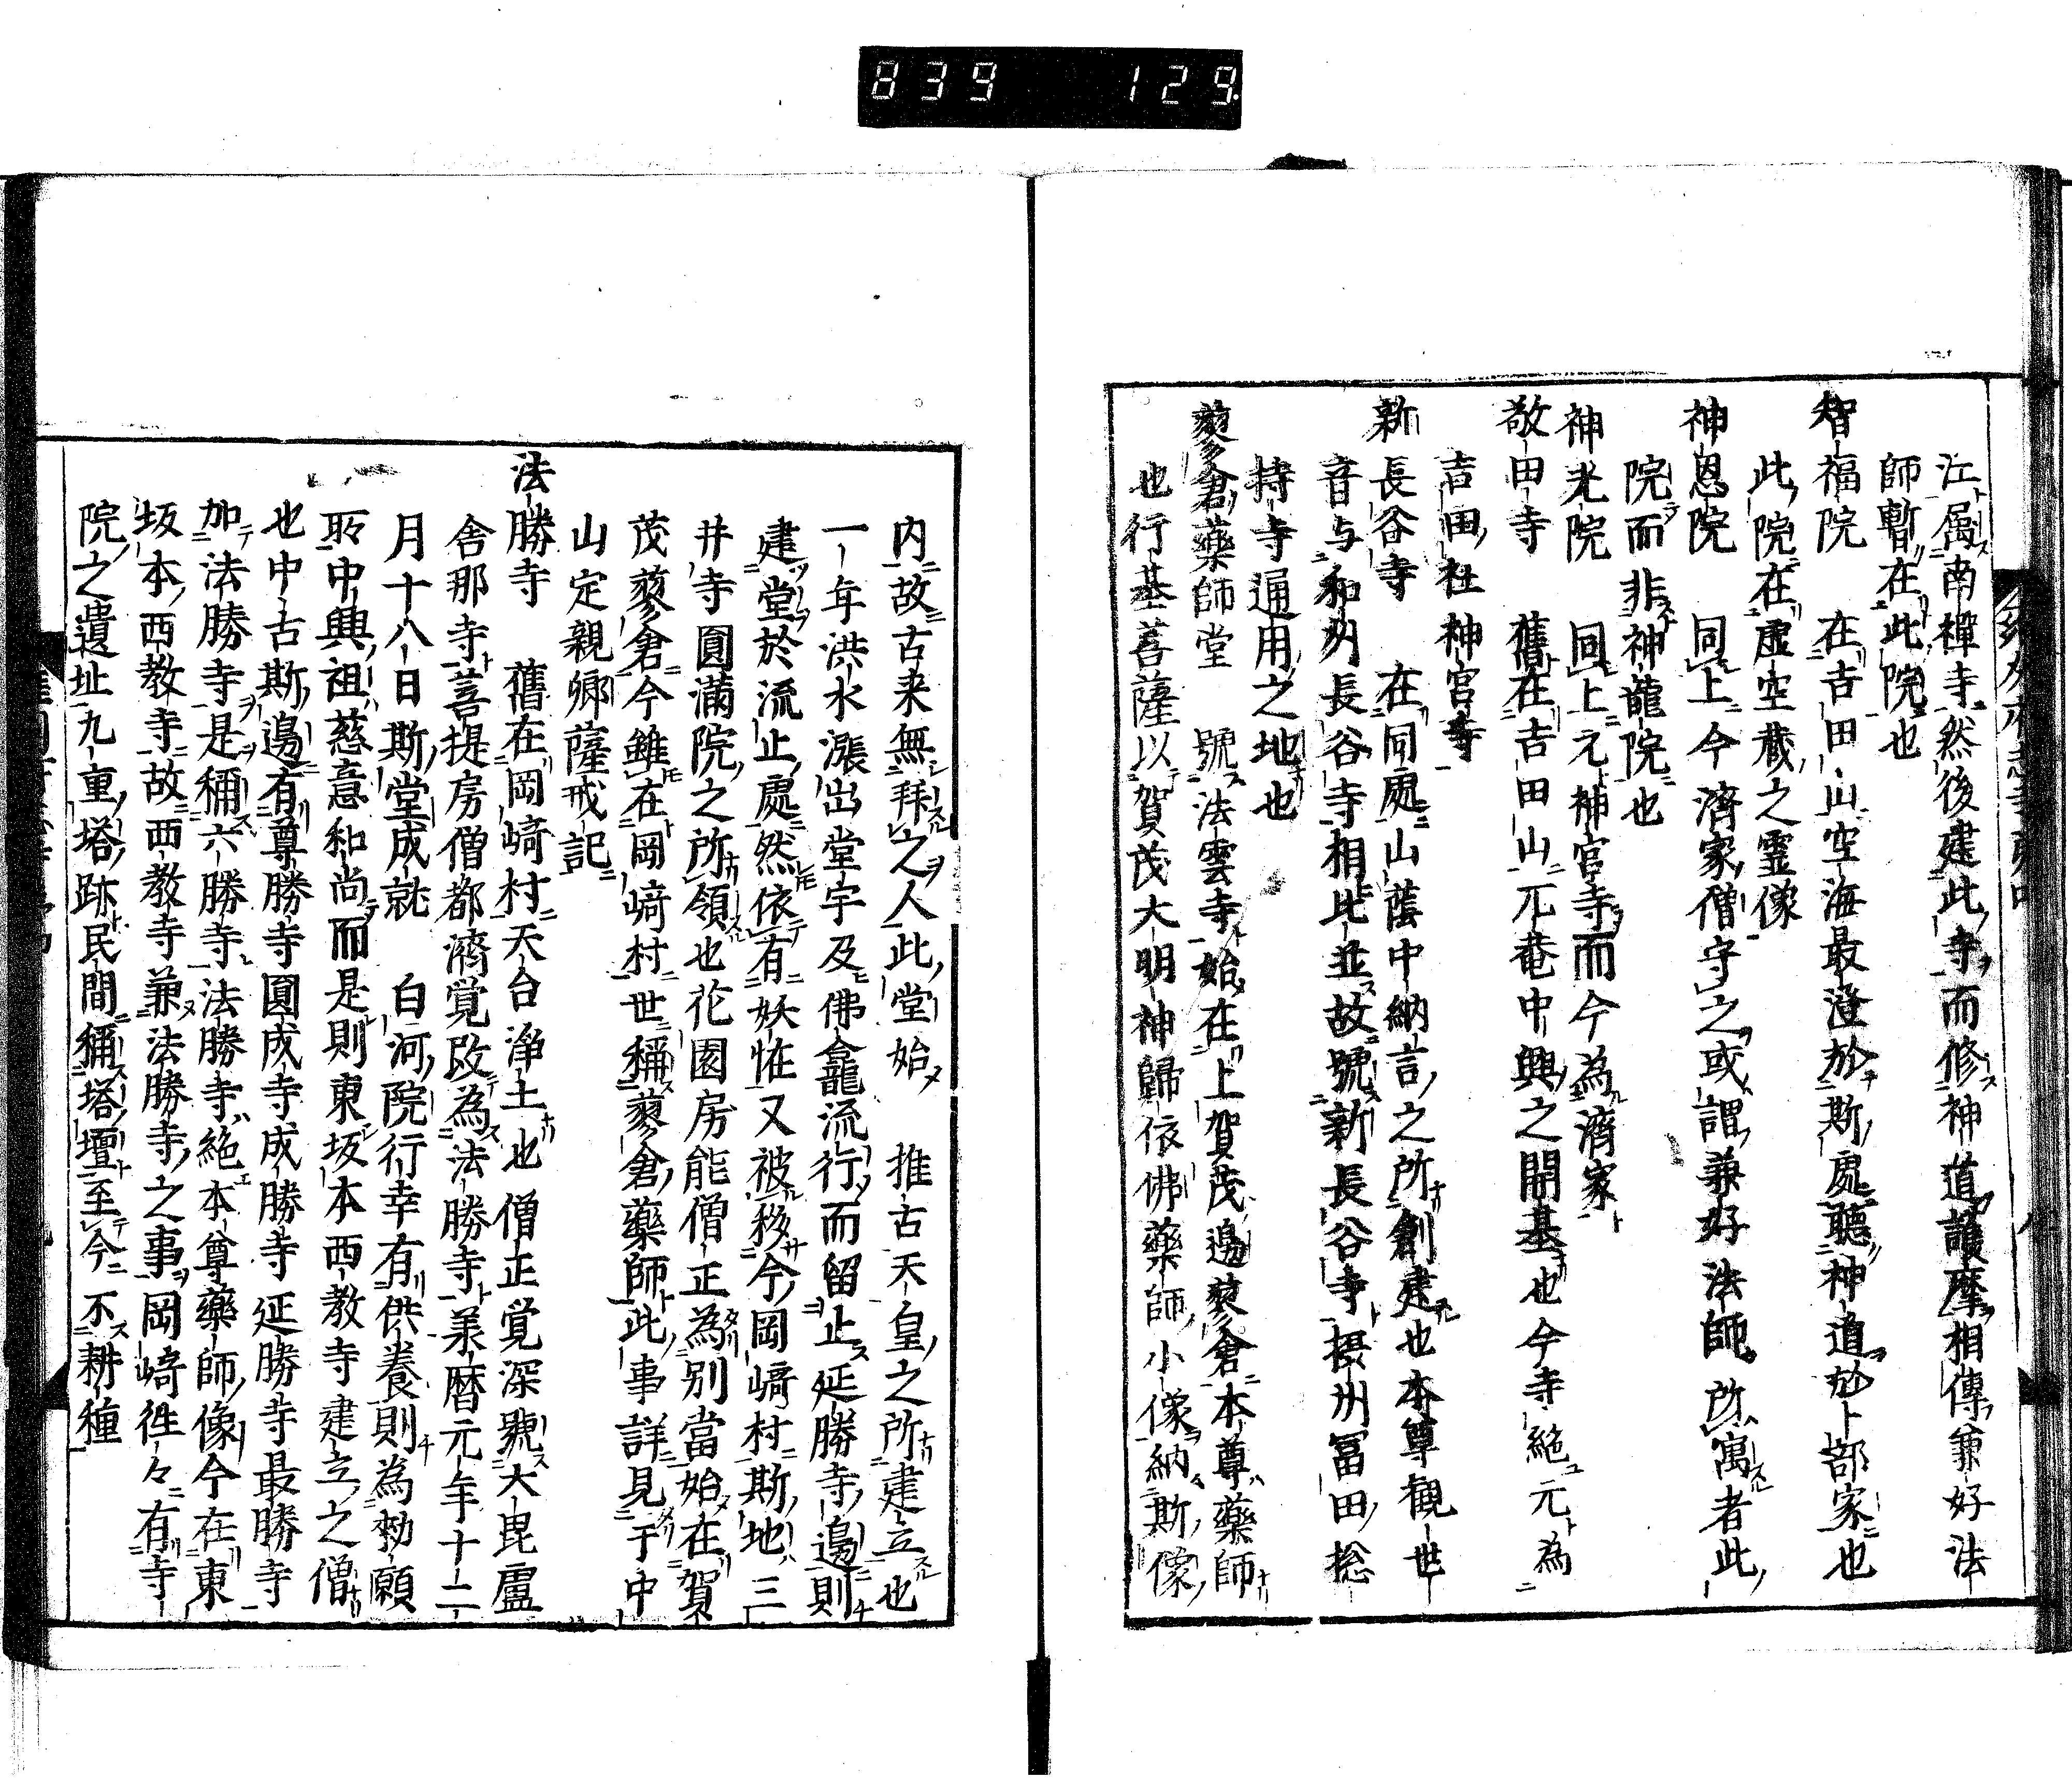 839 129
江属南禪寺然後建此寺而修神道護摩相傳兼好法
師暫在此院也
智福院 在吉田山空海最澄於斯處聽神道於卜部家也
此院在虚空蔵之霊像
神恩院 同上今濟家僧守之或謂兼好法師所寓者此
院而非神龍院也
神光院 同上元神宮寺而今為濟家
敬田寺 舊在吉田山元菴中興之開基也今寺絶元為
吉田社神宮寺
新長谷寺 在同處山蔭中納言之所創建也本尊觀世
音与和州長谷寺相比並故號新長谷寺摂州冨田捴
持寺通用之地也
蓼倉藥師堂 號法雲寺始在上賀茂邊蓼倉本尊藥師
也行基菩薩以賀茂大明神歸依佛藥師小像納斯像
内故古来無拜之人此堂始 推古天皇之所建立也
一年洪水漲出堂宇及佛龕流行而留止延勝寺邊則
建堂於流止處然依有妖怪又被移今岡﨑村斯地三
井寺圓滿院之所領也花園房能僧正為別當始在賀
茂蓼倉今雖在岡﨑村世稱蓼倉藥師此事詳見于中
山定親卿薩戒記
法勝寺 舊在岡﨑村天台浄土也僧正覚深號大毘盧
舎那寺菩提房僧都濟覚改為法勝寺羕暦元年十二
月十八日斯堂成就 白河院行幸有供養則為勅願
所中興祖慈意和尚而是則東坂本西教寺建立之僧
也中古斯邊有尊勝寺圓成寺成勝寺延勝寺最勝寺
加法勝寺是稱六勝寺法勝寺絶本尊藥師像今在東
坂本西教寺故西教寺兼法勝寺之事岡﨑徃々有寺
院之遺址九重塔跡民間稱塔壇至今不耕種